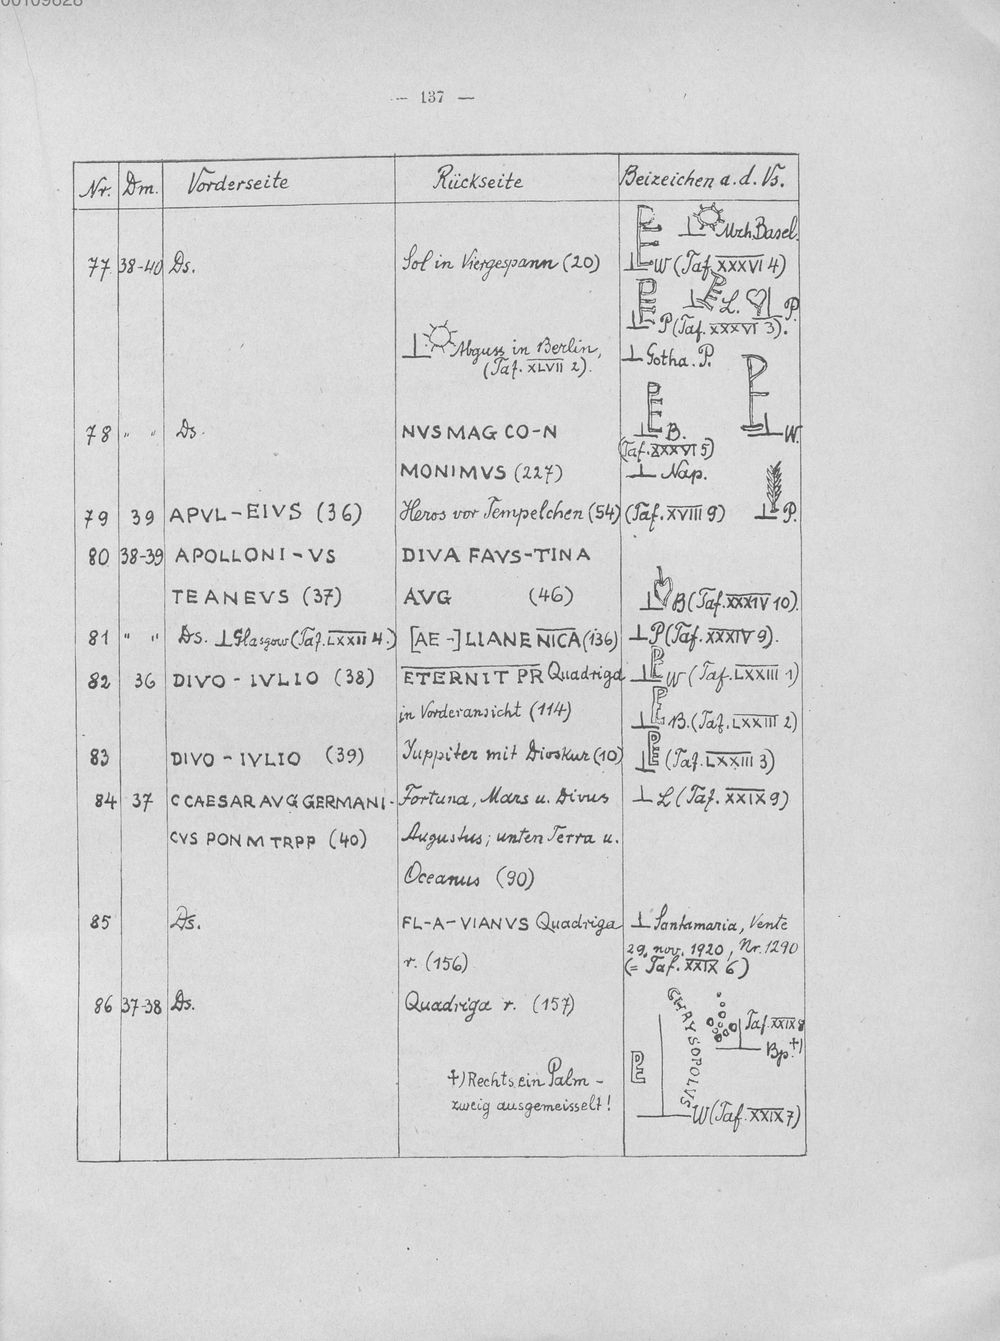 00109828
— 137 —
Nr. Dm. Vorderseite Rückseite Beizeichen a. d. Vs.
Mzh. Basel.
77 38-40 Ds. Sol in Viergespann (20) W (Taf. XXXVI 4)
L. P.
P (Taf. XXXVI 3).
Abguss in Berlin, Gotha. P.
(Taf. XLVII 2).
78 " " Ds. NVS MAG CO-N B. W.
(Taf. XXXVI 5)
MONIMVS (227) Nap.
79 39 APVL-EIVS (36) Heros vor Tempelchen (54) (Taf. XVIII 9) P.
80 38-39 APOLLONI-VS DIVA FAVS-TINA
TEANEVS (37) AVG (46) B (Taf. XXXIV 10).
81 " " Ds. Glasgow (Taf. LXXII 4.) [AE-]LIANE NICA (136) P (Taf. XXXIV 9).
82 36 DIVO-IVLIO (38) ETERNIT PR Quadriga W (Taf. LXXIII 1)
in Vorderansicht (114) B. (Taf. LXXIII 2)
83 DIVO-IVLIO (39) Juppiter mit Dioskur (10) (Taf. LXXIII 3)
84 37 C CAESAR AVG GERMANI- Fortuna, Mars u. Divus L (Taf. XXIX 9)
CVS PON M TRPP (40) Augustus; unten Terra u.
Oceanus (90)
85 Ds. FL-A-VIANVS Quadriga Santamaria, Vente
29. nov. 1920, Nr. 1290
r. (156) (= Taf. XXIX 6)
86 37-38 Ds. Quadriga r. (157) Taf. XXIX 8
Bp. +)
+) Rechts ein Palm-
zweig ausgemeisselt!
W (Taf. XXIX 7)